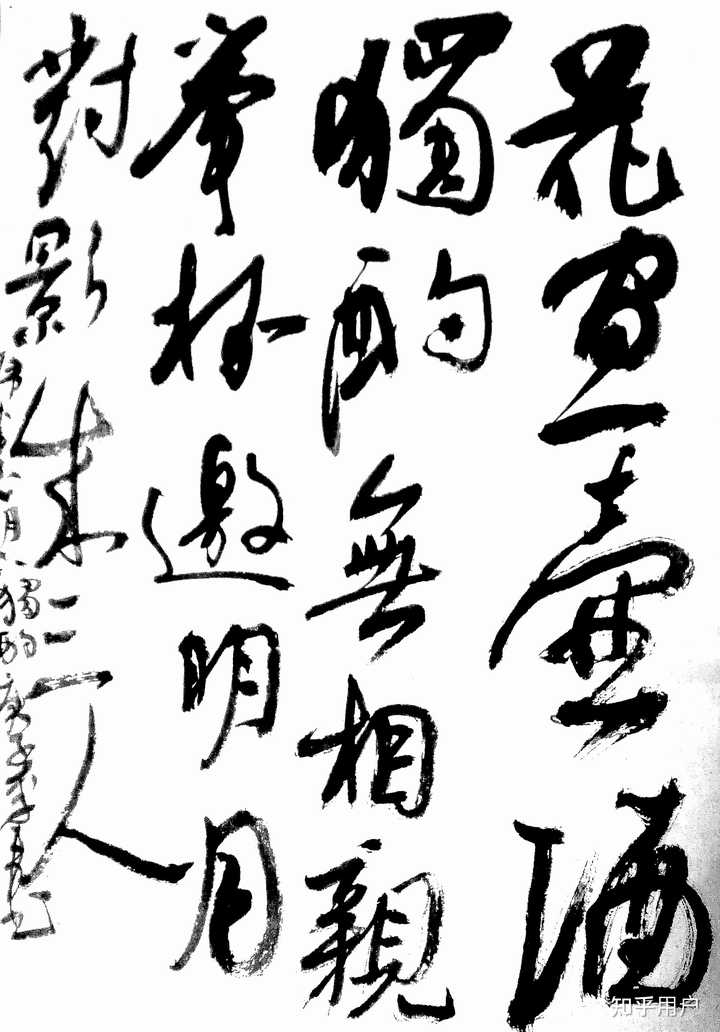 花間一壺酒
獨酌無相親
舉杯邀明月
對影成三人
月下獨酌庚子
知乎用户